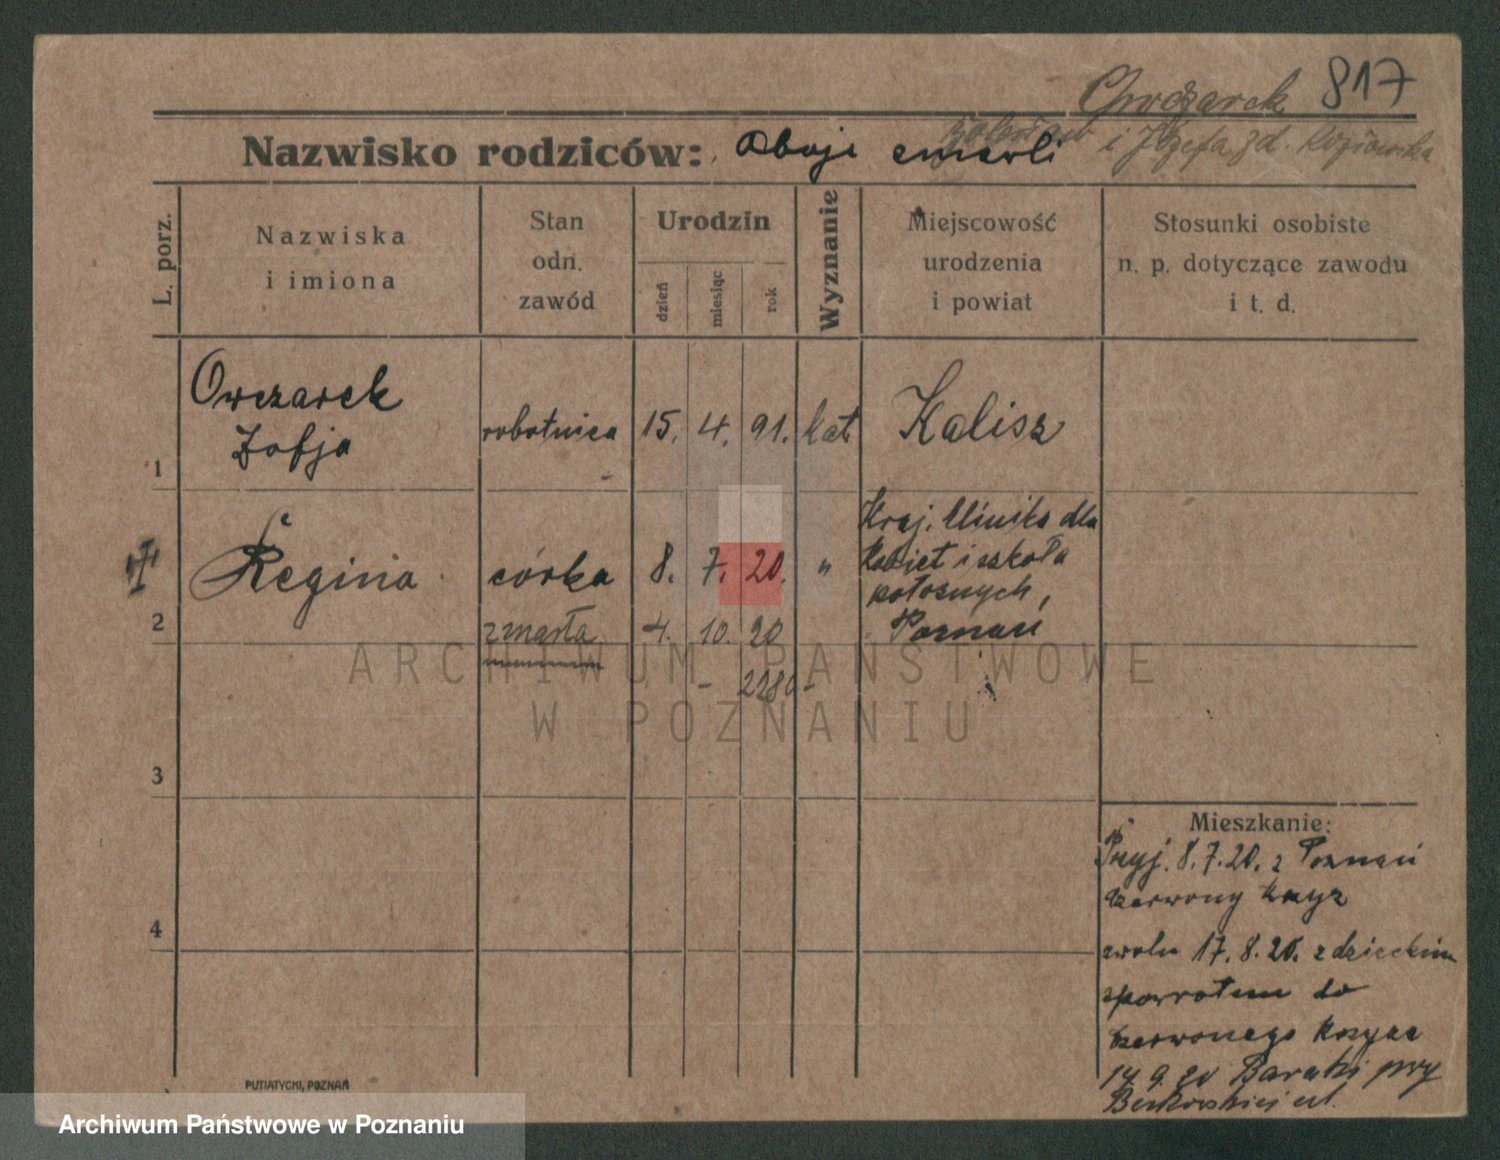 Owczarek 817
Nazwisko rodziców: Oboje zmarli
i Józefa, zd. Koziowska
L. porz.
Nazwiska
i imiona
Stan
odn.
zawód
Urodzin
dzień
miesiąc
rok
Wyznanie
Miejscowość
urodzenia
i powiat
Stosunki osobiste
n. p. dotyczące zawodu
i t. d.
1 Owczarek
Zofja
robotnica 15. 4. 91. kat. Kalisz
2 Regina córka 8. 7. 20. "
Kraj. klinika dla
kobiet i szkoła
położnych,
Poznań
zmarła 4. 10. 20
- 2280 -
3
4
Mieszkanie:
Przyj. 8.7.20. z Poznań
czerwony krzyż
zwoln 17.8.20. z dzieckiem
spowrotem do
czerwonego krzyża
14 9. 20 Baraki przy
ul.
PUTIATYCKI, POZNAŃ
ARCHIWUM PAŃSTWOWE
W POZNANIU
Archiwum Państwowe w Poznaniu